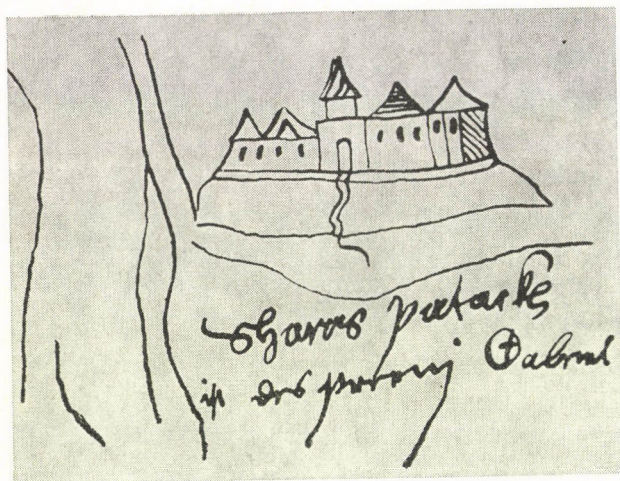 Sharos patack
ist des pereni Gabriel